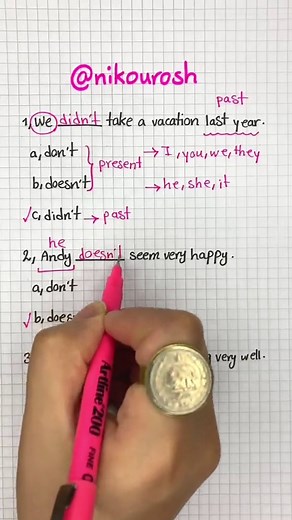 @nikourosh
past
1, We didn't take a vacation last year.
a, don't } present → I, you, we, they
b, doesn't → he, she, it
✓ c, didn't → past
he
2, Andy doesn't seem very happy.
a, don't
✓ b, does
3 very well.
Artline 200
FINE